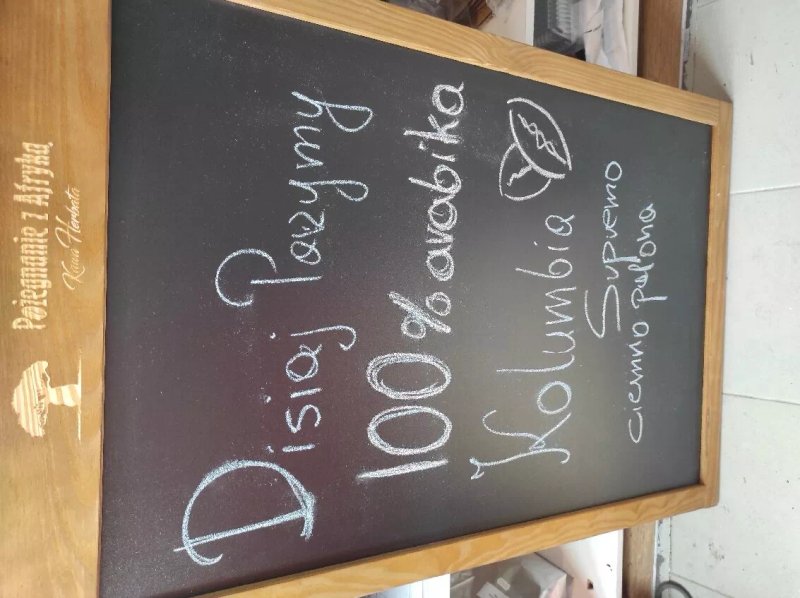 Pożegnanie z Afryką
Kawa Herbata
Disiaj Parzymy
100% arabika
Kolumbia
Supremo
ciemno palona